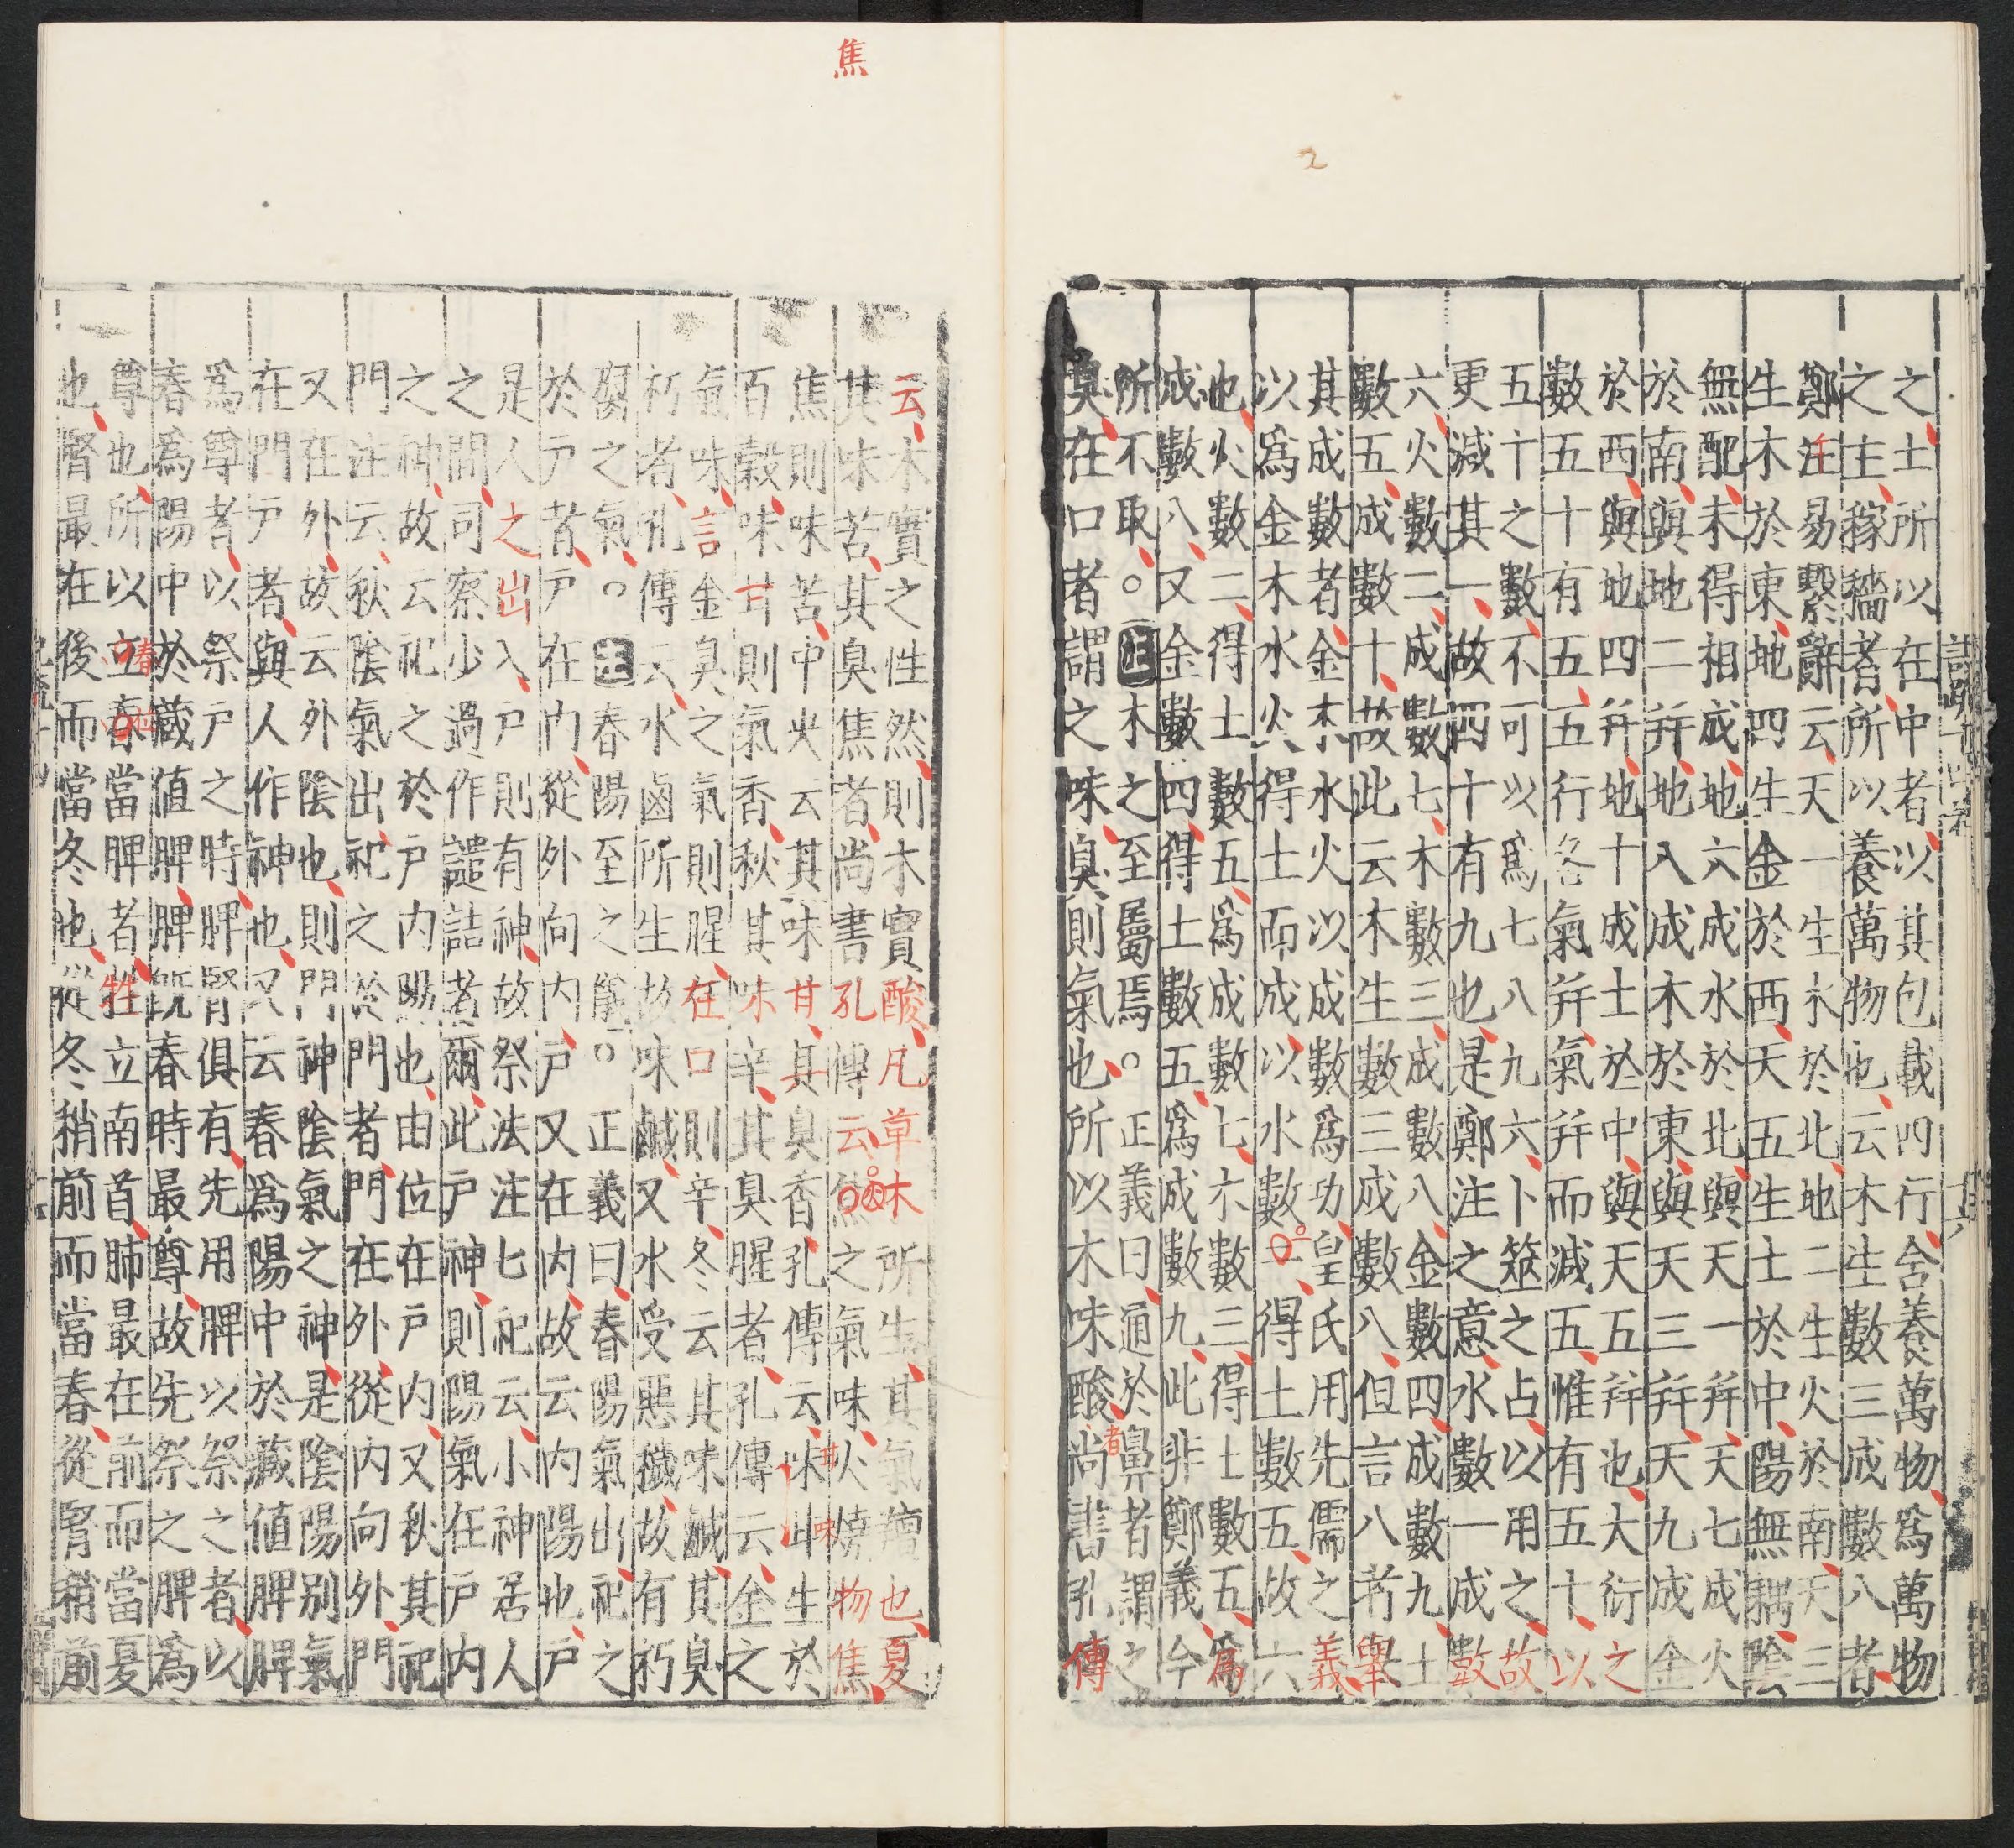 之土所以在中者以其包載四行含養萬物爲萬物
之主稼穡者所以養萬物也云木生數三成數八者
鄭注易繫辭云天一生水於北地二生火於南天三
生木於東地四生金於西天五生土於中陽無耦陰
無配未得相成地六成水於北與天一并天七成火
於南與地二并地八成木於東與天三并天九成金
於西與地四并地十成土於中與天五并也大衍之
數五十有五五行各氣并氣并而減五惟有五十以
五十之數不可以爲七八九六卜筮之占以用之故
更減其一故四十有九也是鄭注之意水數一成數
六火數二成數七木數三成數八金數四成數九土
數五成數十故此云木生數三成數八但言八者舉
其成數者金木水火以成數爲功皇氏用先儒之義
以爲金木水火得土而成以水數一得土數五故六
也火數二得土數五爲成數七木數三得土數五爲
成數八又金數四得土數五爲成數九此非鄭義今
所不取。注木之至屬焉。正義曰通於鼻者謂之
臭在口者謂之味臭則氣也所以木味酸尚書孔傳
者
焦
云木實之性然則木實酸凡草木所生其氣羶也夏
其味苦其臭焦者尚書孔傳云焦之氣味火燒物焦
焦則味苦中央云其味甘其臭香孔傳云味甘生於
百穀味甘則氣香秋其味辛其臭腥者孔傳云金之
氣味言金臭之氣則腥在口則辛冬云其味鹹其臭
朽者孔傳云水鹵所生故味鹹又水受惡穢故有朽
腐之氣。注春陽至之氣。正義曰春陽氣出祀之
於戸者戸在内從外向内戸又在内故云内陽也戸
是人之出入戸則有神故祭法注七祀云小神居人
之間司察少過作譴詰者爾此戸神則陽氣在戸内
之神故云祀之於戸内陽也由位在戸内又秋其祀
門注云秋陰氣出祀之於門者門在外從内向外門
又在外故云外陰也則門神陰氣之神是陰陽別氣
在門戸者與人作神也又云春爲陽中於藏值脾脾
爲尊者以祭戸之時脾腎俱有先用脾以祭之者以
春爲陽中於藏值脾脾既春時最尊故先祭之脾爲
尊也所以立春當脾者牲立南首肺最在前而當夏
也腎最在後而當冬也從冬稍前而當春從腎稍前